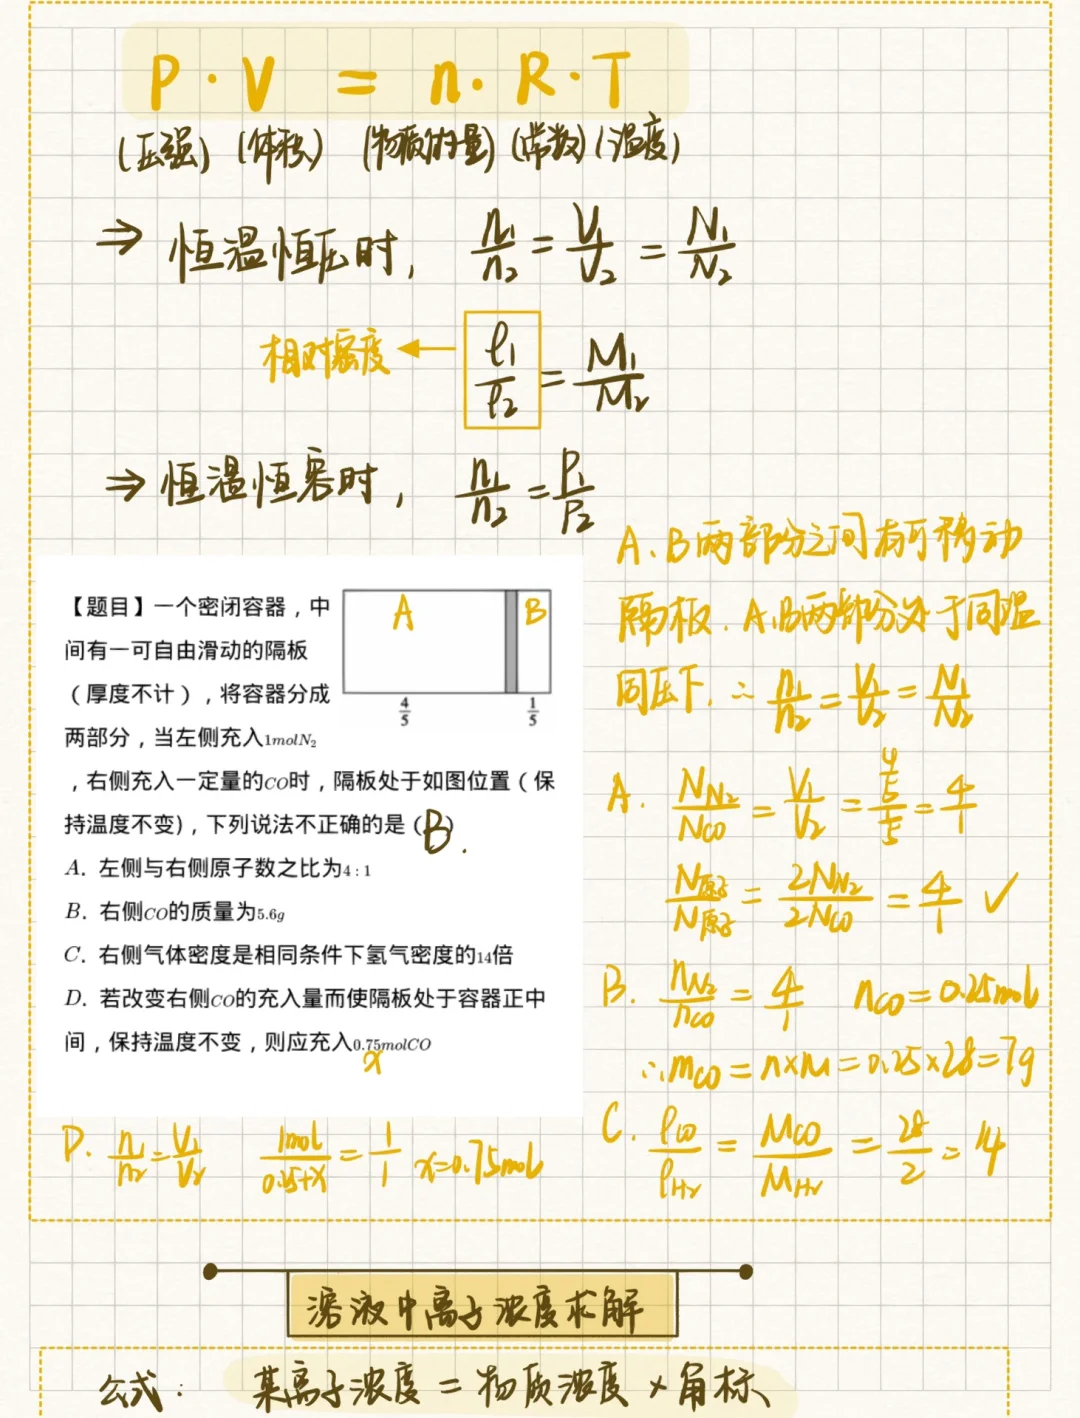 P·V = n·R·T
(压强) (体积) (物质的量) (常数) (温度)
⇒ 恒温恒压时, n₁/n₂ = V₁/V₂ = N₁/N₂
相对密度 ← ρ₁/ρ₂ = M₁/M₂
⇒ 恒温恒容时, n₁/n₂ = P₁/P₂
A、B两部分之间有可移动
隔板. A、B两部分处于同温
同压下, ∴ n₁/n₂ = V₁/V₂ = N₁/N₂
【题目】一个密闭容器，中
间有一可自由滑动的隔板
（厚度不计），将容器分成
两部分，当左侧充入1molN₂
，右侧充入一定量的CO时，隔板处于如图位置（保
持温度不变），下列说法不正确的是 (B)
A. 左侧与右侧原子数之比为4:1
B. 右侧CO的质量为5.6g
C. 右侧气体密度是相同条件下氢气密度的14倍
D. 若改变右侧CO的充入量而使隔板处于容器正中
间，保持温度不变，则应充入0.75molCO
x
A B
4/5 1/5
A. N_N₂/N_CO = V₁/V₂ = 4/5/1/5 = 4/1
N原子/N原子 = 2N_N₂/2N_CO = 4/1 ✓
B. n_N₂/n_CO = 4/1 n_CO = 0.25mol
∴ m_CO = n×M = 0.25×28 = 7g
C. ρ_CO/ρ_H₂ = M_CO/M_H₂ = 28/2 = 14
D. n₁/n₂ = V₁/V₂ 1mol/0.25+x = 1/1 x=0.75mol
溶液中离子浓度求解
公式: 某离子浓度 = 物质浓度 × 角标